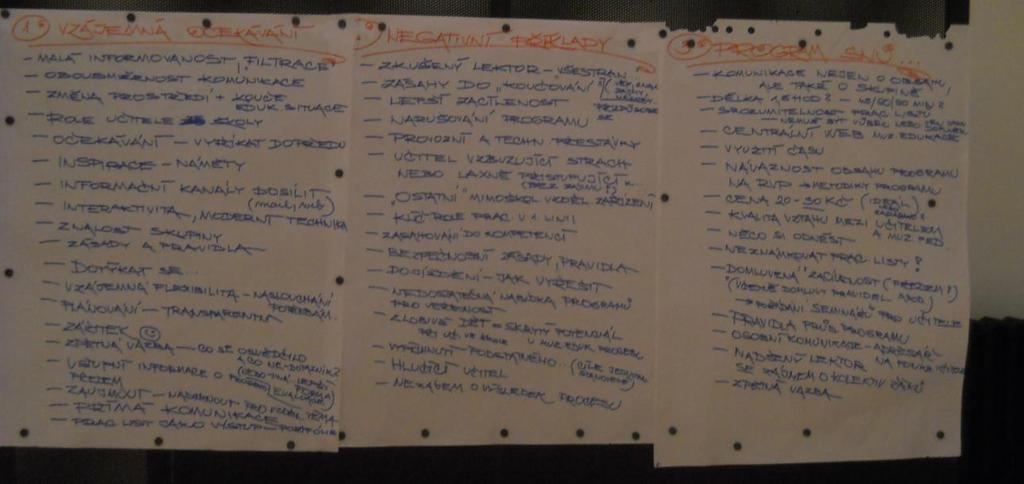 1. VZÁJEMNÁ OČEKÁVÁNÍ
- MALÁ INFORMOVANOST, FILTRACE
- OBOUSMĚRNOST KOMUNIKACE
- ZMĚNA PROSTŘEDÍ +
EDUK. SITUACE
- ROLE UČITELE ŠKOLY
- OČEKÁVÁNÍ - VYŘÍKAT DOPŘEDU
- INSPIRACE - NÁMĚTY
- INFORMAČNÍ KANÁLY POSÍLIT
(mail, web)
- INTERAKTIVITA, MODERNÍ TECHNIKA
- ZNALOST SKUPINY
- ZÁSADY A PRAVIDLA
- DOTÝKAT SE...
- VZÁJEMNÁ FLEXIBILITA - NASLOUCHÁNÍ
POTŘEBÁM
- PLÁNOVÁNÍ - TRANSPARENTNÍ
- ZÁŽITEK
- ZPĚTNÁ VAZBA - CO SE OSVĚDČILO
A CO NE - DOTAZNÍK?
(NEBO JINÁ LEPŠÍ FORMA
EVALUACE)
- VSTUPNÍ INFORMACE O PROGRAMU
PŘEDEM
- ZAUJMOUT - NADCHNOUT PRO TÉMA
- PŘÍMÁ KOMUNIKACE
- PRAC. LIST JAKO VÝSTUP - PORTFOLIO
2. NEGATIVNÍ PŘÍKLADY
- ZKUŠENÝ LEKTOR - VŠESTRAN...
- ZÁSAHY DO "KOUČOVÁNÍ"
PŘIZPŮSOBENÍ
SE
- LEPŠÍ ZACÍLENOST
- NARUŠOVÁNÍ PROGRAMU
- PROVOZNÍ A TECHN. PŘESTÁVKY
- UČITEL VZBUZUJÍCÍ STRACH
NEBO LAXNĚ PŘISTUPUJÍCÍ
(BEZ ZÁJMU!)
- "OSTATNÍ" MIMOŠKOL. VZDĚL. ZAŘÍZENÍ
- KLÍČ. ROLE PRAC. V 1. LINII
- ZASAHOVÁNÍ DO KOMPETENCÍ
- BEZPEČNOSTNÍ ZÁSADY, PRAVIDLA
- DOJÍŽDĚNÍ - JAK VYŘEŠIT
- NEDOSTATEČNÁ NABÍDKA PROGRAMŮ
PRO VEŘEJNOST
- ZLOBIVÉ DÍTĚ = SKRYTÝ POTENCIÁL
V MUZ. EDUK. PROCESU
- VYPÍCHNUTÍ PODSTATNÉHO... (CÍLE JEDNOTL.
STANOVENÉ)
- HLUČÍCÍ UČITEL
- NEZÁJEM O VÝSLEDEK PROCESU
3. PROGRAM SNŮ...
- KOMUNIKACE NEJEN O OBSAHU,
ALE TAKÉ O SKUPINĚ
- DÉLKA 1 HOD? - 45/60/90 MIN?
- SROZUMITELNOST PRAC. LISTU
- CENTRÁLNÍ WEB MUZ. EDUKACE
- VYUŽITÍ ČASU
- NÁVAZNOST OBSAHU PROGRAMU
NA RVP → METODIKY PROGRAMŮ
- CENA 20-30 KČ (IDEÁL)
- KVALITA VZTAHU MEZI UČITELEM
A MUZ. PED.
- NĚCO SI ODNÉST
- NEZNÁMKOVAT PRAC. LISTY?
- DOMLUVENÁ "ZAČLENOST" (PŘEDEM!)
(VČETNĚ DOMLUVY PRAVIDEL APOD.)
→ POŘÁDÁNÍ SEMINÁŘŮ PRO UČITELE
- PRAVIDLA PROGRAMU
- OSOBNÍ KOMUNIKACE - ADRESÁŘ
- NADŠENÝ LEKTOR
SE ZÁJMEM O KOLEKTIV ŽÁKŮ
- ZPĚTNÁ VAZBA